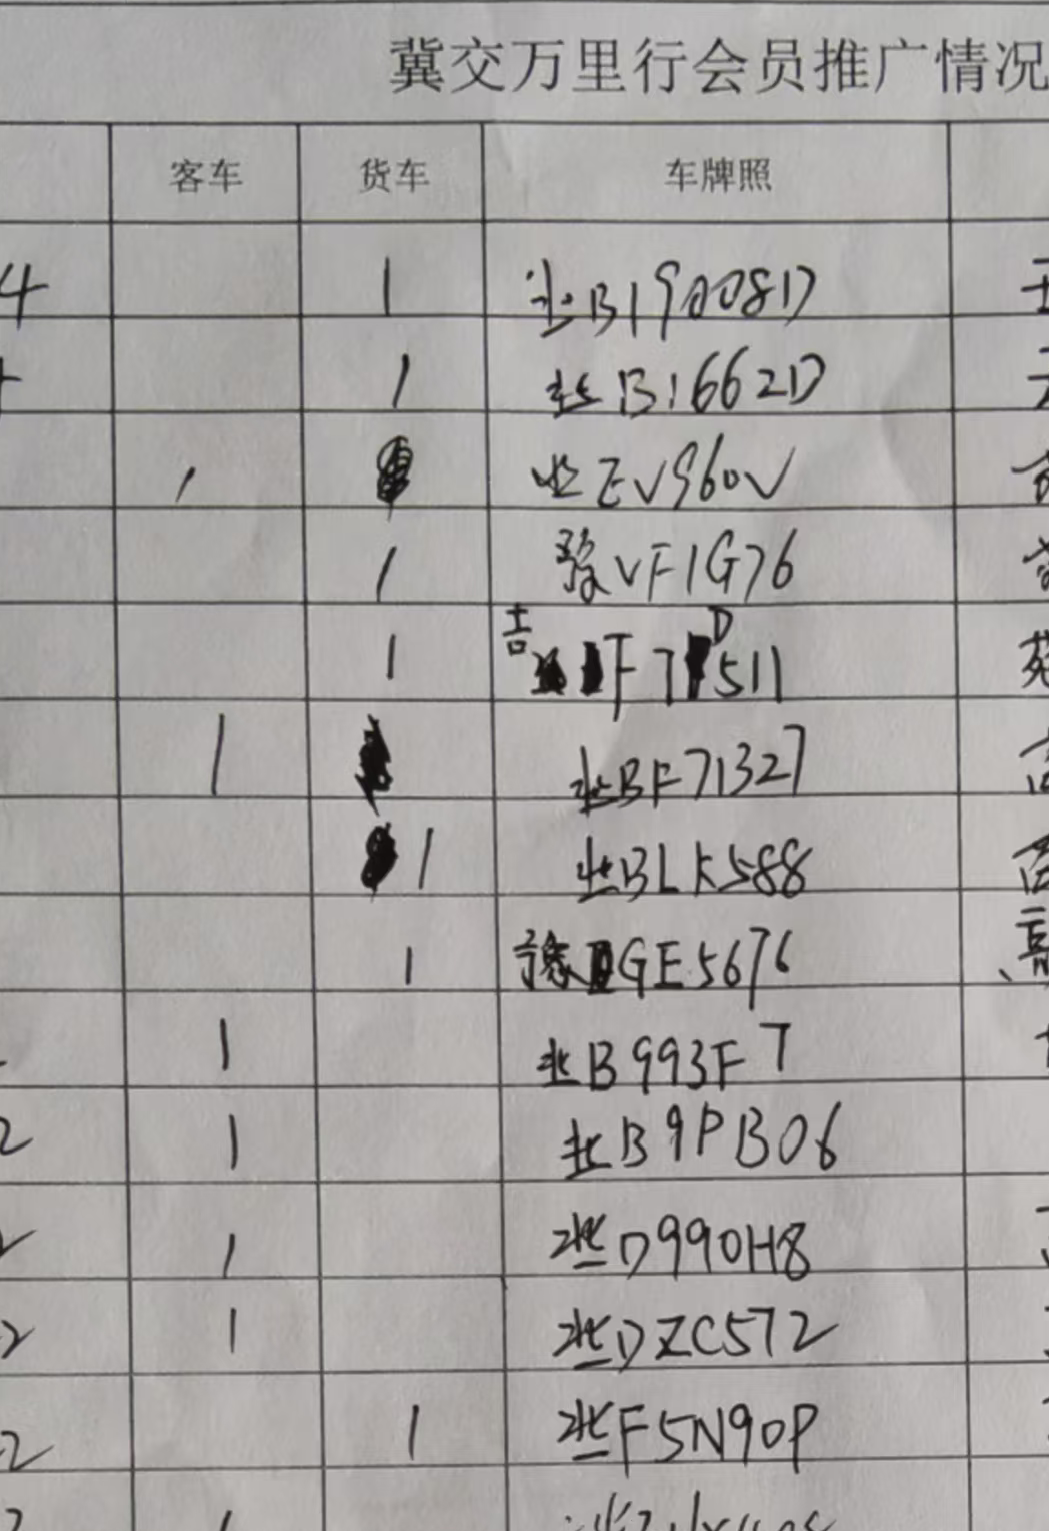 冀交万里行会员推广情况
客车 货车 车牌照
4 1 冀B19008D
1 冀B1662D
1 冀EV960V
1 豫VF1G76
1 吉F7D511
1 冀BF71327
1 冀BLK588
1 豫GE5676
1 冀B993FT
2 1 冀B9PB06
1 冀D990H8
2 1 冀DZC572
2 1 冀F5N90P